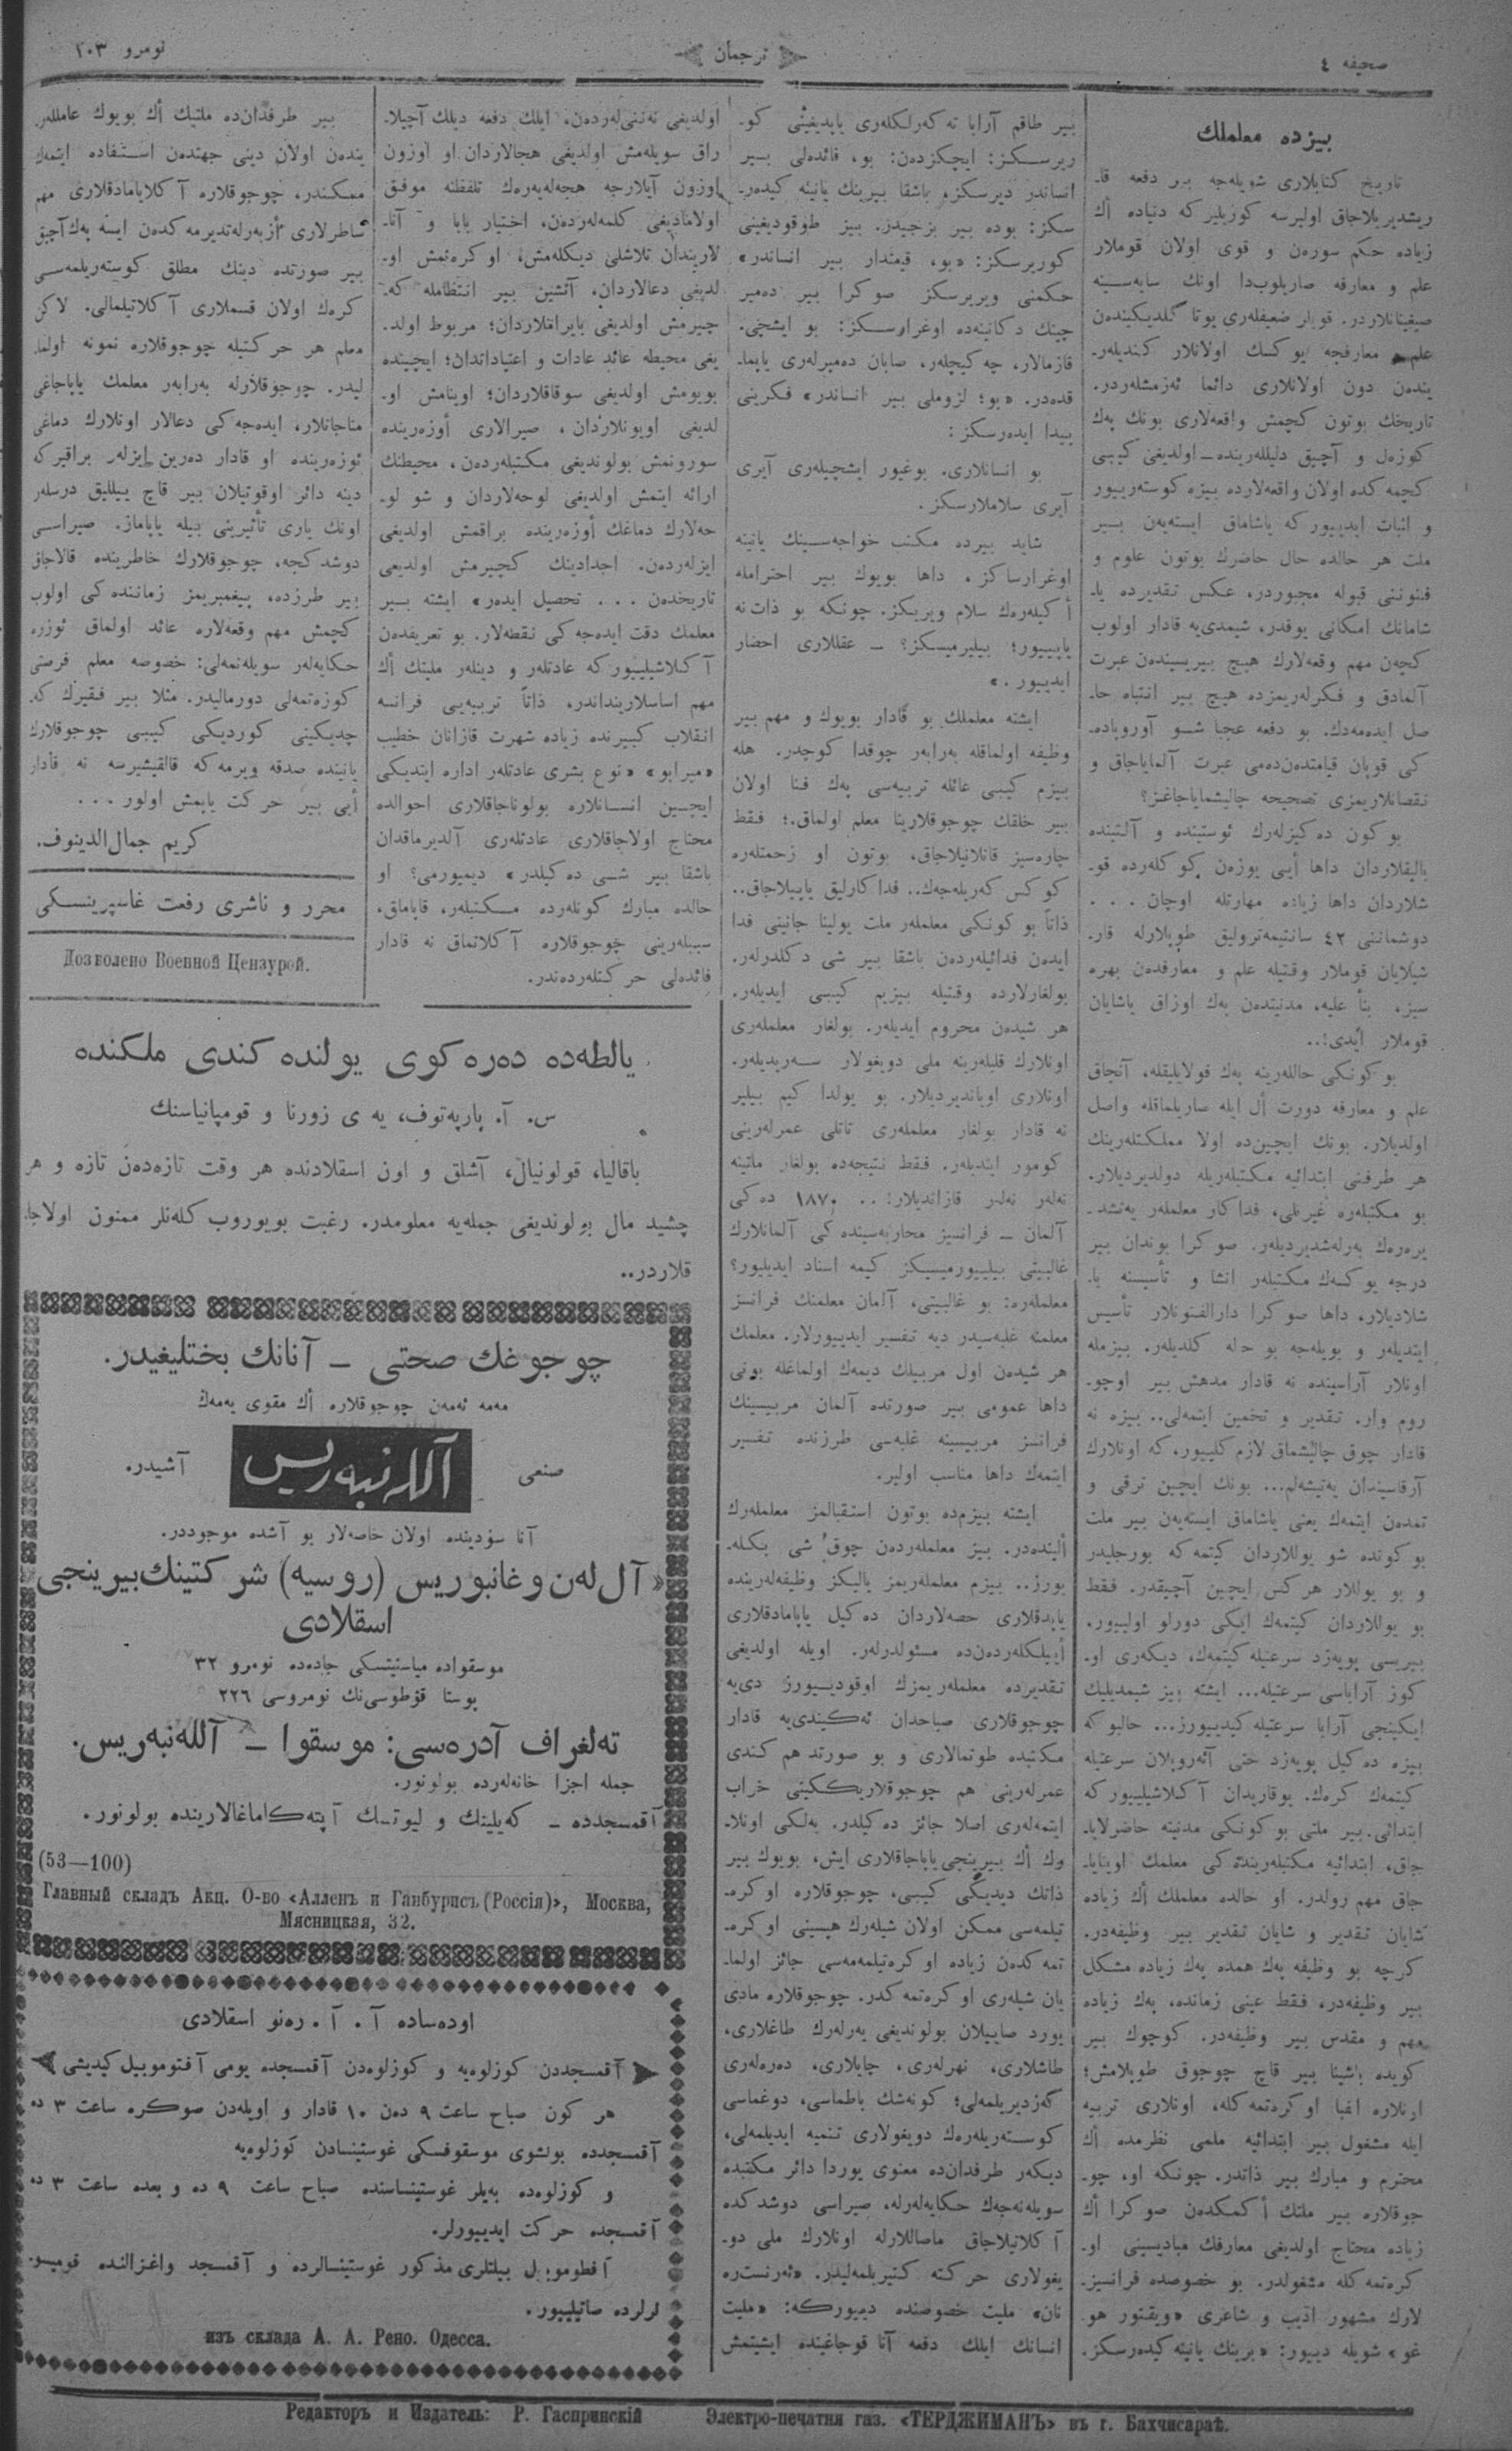 صحیفه ٤
ترجمان
نومرو ٢٠٣
بیزده معلملك
تاریخ كتابلاری شویله‌جه بر دفعه قا-
ریشدیریلاجاق اولیرسه كوریلیر كه دنیاده أك
زیاده حكم سوره‌ن و قوی اولان قوملار
علم و معارفه صاریلوب‌دا اونك سایه‌سینه
علم و معارفجه یوكسك اولانلار كندیلر-
ینده‌ن دون اولانلاری دائما ئه‌زمشله‌ردر.
تاریخك بوتون كچمش واقعه‌لاری بونك پەك
كوزه‌ل و آچیق دلیللریده – اولدیغی كیبی
كچمه‌كده اولان واقعه‌لارده بیزه كوسته‌رییور
و اثبات ایدییور كه یاشاماق ایسته‌یه‌ن بیر
ملت هر حالده حال حاضرك بوتون علوم و
فنوننی قبوله مجبوردر، عكس تقدیرده یا-
شامانك امكانی یوقدر، شیمدی‌یه قادار اولوب
كچه‌ن مهم وقعه‌لارك هیچ بیریسینده‌ن عبرت
آلمادق و فكرله‌ریمزده هیچ بیر انتباه حا-
صل ایده‌مه‌دك. بو دفعه عجبا شو آوروپاده-
كی قوپان قیامتده‌ن‌ده‌می عبرت آلمایاجاق و
نقصانلاریمزی تصحیحه چالیشمایاجاغز؟
بو كون ده‌كیزله‌رك ئوستینده و آلتینده
بالیقلاردان داها أیی یوزه‌ن كوكله‌رده قو-
شلاردان داها زیاده مهارتله اوچان . . .
دوشماننی ٤٢ سانتیمه‌ترولیق طوپلارله قار-
شیلایان قوملار وقتیله علم و معارفدن بهره
قوملار أیدی!..
بو كونكی حالله‌رینه پەك قولایلیقله، آنجاق
علم و معارفه دورت أل ایله صاریلماقله واصل
اولدیلار. بونك ایچین‌ده اولا مملكتله‌رینك
هر طرفنی ابتدائیه مكتبله‌ریله دولدیردیلار.
بو مكتبله‌ره غیرتلی، فداكار معلمله‌ر یه‌تشد-
یره‌رەك یه‌رله‌شدیردیله‌ر. صوكرا بوندان بیر
درجه یوكسك مكتبله‌ر انشا و تأسیسنه با-
شلادیلار، داها صوكرا دارالفنونلار تأسیس
ایتدیله‌ر و بویله‌جه بو حاله كلدیله‌ر. بیزمله
اونلار آراسینده نه قادار مدهش بیر اوچو-
روم وار. تقدیر و تخمین ایتمه‌لی.. بیزه نه
قادار چوق چالیشماق لازم كلییور، كه اونلارك
آرقاسیندان یه‌تیشه‌لم... بونك ایچین ترقی و
تمدن ایتمه‌ك یعنی یاشاماق ایسته‌یه‌ن بیر ملت
بو كونده شو یوللاردان كیتمه‌كه بورجلیدر
و بو یوللار هر كس ایچین آچیقدر. فقط
بو یوللاردان كیتمه‌ك ایكی دورلو اولییور.
بیریسی پویه‌زد سرعتیله كیتمه‌ك، دیكه‌ری او-
كوز آراباسی سرعتیله... ایشته بیز شیمدیلیك
ایكینجی آرابا سرعتیله كیدییورز... حالبوكه
بیزه ده‌كیل پویه‌زد حتی آئه‌روپلان سرعتیله
كیتمه‌ك كره‌ك. یوقاریدان آكلاشیلییور كه
ابتدائی بیر ملتی بو كونكی مدنیته حاضرلایا-
جاق، ابتدائیه مكتبله‌رینده‌كی معلمك اوینایا-
جاق مهم رولدر. او حالده معلملك أك زیاده
شایان تقدیر و شایان تقدیر بیر وظیفه‌در.
كرچه بو وظیفه پەك همده پەك زیاده مشكل
بیر وظیفه‌در، فقط عینی زمانده، پەك زیاده
مهم و مقدس بیر وظیفه‌در. كوچوك بیر
كویده باشینا بیر قاچ چوجوق طوپلامش؛
اونلاره الفبا اوكره‌تمه‌كله، اونلاری تربیه
ایله مشغول بیر ابتدائیه ملمی نظرمده أك
محترم و مبارك بیر ذاتدر. چونكه او، چو-
جوقلاره بیر ملتك أكمكدن صوكرا أك
زیاده محتاج اولدیغی معارفك مبادیسینی او-
كره‌تمه‌كله مشغولدر. بو خصوصده فرانسیز-
لارك مشهور ادیب و شاعری «ویقتور هو-
غو» شویله دییور: «برینك یانینه كیده‌رسكز.
بیر طاقم آرابا ته‌كه‌رلكله‌ری یاپدیغینی كو-
ریرسكز: ایچكزدن: بو، فائده‌لی بیر
انساندر دیرسكز، باشقا بیرینك یانینه كیده‌ر-
سكز: بوده بیر بزجیدر. بیز طوقودیغینی
كوریرسكز: «بو، قیمتدار بیر انساندر»
حكمنی ویریرسكز صوكرا بیر ده‌میر
چینك دكانینه‌ده اوغرارسكز: بو ایشچی،
قازمالار، چه‌كیچله‌ر، صابان ده‌میرله‌ری یاپما-
قده‌در. «بو؛ لزوملی بیر انساندر» فكرینی
پیدا ایده‌رسكز:
بو انسانلاری. بوغیور ایشچیله‌ری آیری
آیری سلاملارسكز.
شاید بیرده مكتب خواجه‌سینك یانینه
اوغرارساكز، داها بویوك بیر احترامله
أكیله‌ره‌ك سلام ویریكز. چونكه بو ذات نه
یاپییور؛ بیلیرمیسكز؟ – عقللاری احضار
ایدییور.»
ایشته معلملك بو قادار بویوك و مهم بیر
وظیفه اولماقله به‌رابه‌ر چوقدا كوچدر. هله
بیزم كیبی عائله تربیه‌سی پەك فنا اولان
بیر خلقك چوجوقلارینا معلم اولماق.؛ فقط
چاره‌سیز قاتلانیلاجاق، بوتون او زحمتله‌ره
كوكس كه‌ریله‌جه‌ك.. فداكارلیق یاپیلاجاق..
ذاتاً بو كونكی معلمله‌ر ملت یولینا جانینی فدا
ایده‌ن فدائیله‌رده‌ن باشقا بیر شی دكلدرلر.
بولغارلارده وقتیله بیزیم كیبی ایدیله‌ر.
هر شیده‌ن محروم ایدیله‌ر. بولغار معلمله‌ری
اونلارك قلبله‌رینه ملی دویغولار سه‌ریدیله‌ر.
اونلاری اویاندیردیلار. بو یولدا كیم بیلیر
نه قادار بولغار معلمله‌ری تاتلی عمرله‌رینی
كومور ایتدیله‌ر. فقط نتیجه‌ده بولغار ملتینه
نه‌له‌ر نه‌له‌ر قازاندیلار!.. ١٨٧٠ ده‌كی
آلمان – فرانسیز محاربه‌سینده‌كی آلمانلارك
غالبیتی بیلییورمیسیكز كیمه اسناد ایدیلیور؟
معلمله‌ره: بو غالبیتی، آلمان معلمنك فرانسز
معلمنه غلبه‌سیدر دیه تفسیر ایدییورلار. معلمك
هر شیده‌ن اول مربیلك دیمه‌ك اولماغله بونی
داها عمومی بیر صورتده آلمان مربیسینك
فرانسز مربیسینه غلبه‌سی طرزنده تفسیر
ایتمه‌ك داها مناسب اولیر.
ایشته بیزم‌ده بوتون استقبالمز معلمله‌رك
ألینده‌در. بیز معلمله‌رده‌ن چوق شی بكله-
یورز.. بیزم معلمله‌ریمز یالیكز وظیفه‌له‌رینده
یاپدقلاری حصه‌لاردان ده‌كیل یاپامادقلاری
أییلكله‌رده‌ن‌ده مسئولدرلر. اویله اولدیغی
تقدیرده معلمله‌ریمزك اوقودیییورز دی‌یه
چوجوقلاری صباحدان ئه‌كیندی‌یه قادار
مكتبده طوتمالاری و بو صورتد هم كندی
عمرله‌رینی هم چوجوقلاریككینی خراب
ایتمه‌له‌ری اصلا جائز ده‌كیلدر. به‌لكی اونلا-
رك أك بیرینجی یاپاجاقلاری ایش، بویوك بیر
ذاتك دیدیكی كیبی، چوجوقلاره اوكره-
تیلمه‌سی ممكن اولان شیله‌رك هپسینی اوكره-
تمه‌كده‌ن زیاده اوكره‌تیلمه‌مه‌سی جائز اولما-
یان شیله‌ری اوكره‌تمه‌كدر. چوجوقلاره مادی
یورد صاییلان بولوندیغی یه‌رله‌رك طاغلاری،
طاشلاری، نهرله‌ری، چایلاری، ده‌ره‌له‌ری
گه‌زدیریلمه‌لی؛ كونه‌شك باطماسی، دوغماسی
كوسته‌ریله‌ره‌ك دویغولاری تنمیه ایدیلمه‌لی،
دیكه‌ر طرفدان‌ده معنوی یوردا دائر مكتبده
سویله‌نه‌جه‌ك حكایه‌له‌رله، صیراسی دوشدكده
آكلاتیلاجاق ماصاللارله اونلارك ملی دو-
یغولاری حركته كتیریلمه‌لیدر. «ئه‌رنست‌ره
نان» ملیت خصوصنده دییوركه: «ملیت
انسانك ایلك دفعه آنا قوجاغینده ایشیتمش
اولدیغی نه‌ننی‌له‌رده‌ن، ایلك دفعه دیلك آچیلا-
راق سویله‌مش اولدیغی هجالاردان او اوزون
اوزون آیلارجه هجه‌له‌یه‌ره‌ك تلفظنه موفق
اولامادیغی كلمه‌له‌رده‌ن، اختیار بابا و آنا-
لاریندان تلاشلی دیكله‌مش، اوكره‌نمش او-
لدیغی دعالاردان، آتشین بیر انتظامله كه-
چیرمش اولدیغی بایراملاردان؛ مربوط اولد-
یغی محیطه عائد عادات و اعتیاداتدان؛ ایچینده
بویومش اولدیغی سوقاقلاردان؛ اوینامش او-
لدیغی اویونلاردان، صیرالاری أوزه‌رینده
سورونمش بولوندیغی مكتبله‌رده‌ن، محیطنك
ارائه ایتمش اولدیغی لوحه‌لاردان و شو لو-
حه‌لارك دماغك أوزه‌رینده براقمش اولدیغی
ایزله‌رده‌ن. اجدادینك كچیرمش اولدیغی
تاریخده‌ن . . . تحصیل ایده‌ر» ایشته بیر
معلمك دقت ایده‌جه‌كی نقطه‌لار. بو تعریفده‌ن
آكلاشیلییور كه عادتله‌ر و دینله‌ر ملیتك أك
مهم اساسلارینداندر، ذاتاً تربیه‌یی فرانسه
انقلاب كبیرنده زیاده شهرت قازانان خطیب
«میرابو» «نوع بشری عادتله‌ر اداره ایتدیكی
ایچین انسانلاره بولوناجاقلاری احوالده
محتاج اولاجاقلاری عادتله‌ری آلدیرماقدان
باشقا بیر شی ده‌كیلدر» دیمیورمی؟ او
حالده مبارك كونله‌رده مكتبله‌ر، قاپاماق،
سببله‌رینی چوجوقلاره آكلاتماق نه قادار
فائده‌لی حركتله‌رده‌ندر.
بیر طرفدان‌ده ملتیك أك بویوك عاملله‌ر-
ینده‌ن اولان دینی جهتده‌ن استفاده ایتمه‌ك
ممكندر، چوجوقلاره آكلایامادقلاری مهم
ساطرلاری أزبه‌رله‌تدیرمه‌كده‌ن ایسه پەك آچیق
بیر صورتده دینك مطلق كوسته‌ریلمه‌سی
كره‌ك اولان قسملاری آكلاتیلمالی. لاكن
معلم هر حركتیله چوجوقلاره نمونه اولما-
لیدر. چوجوقلارله به‌رابه‌ر معلمك یاپاجاغی
مناجاتلار، ایده‌جه‌كی دعالار اونلارك دماغی
ئوزه‌رینده او قادار ده‌رین ایزله‌ر براقیر كه
دینه دائر اوقوتیلان بیر قاچ ییللیق درسله‌ر
اونك یاری تأثیرینی بیله یاپاماز. صیراسی
دوشدكجه، چوجوقلارك خاطرینده قالاجاق
بیر طرزده، پیغمبریمز زماننده‌كی اولوب
كچمش مهم وقعه‌لاره عائد اولماق ئوزره
حكایه‌له‌ر سویله‌نمه‌لی: خصوصه معلم فرصتی
كوزه‌تمه‌لی دورمالیدر. مثلا بیر فقیرك كه-
چدیكینی كوردیكی كیبی چوجوقلارك
یانینده صدقه ویرمه‌كه قالقیشیرسه نه قادار
أیی بیر حركت یاپمش اولور . . .
كریم جمال‌الدینوف.
محرر و ناشری رفعت غاسپرینسكی
Дозволено Военной Цензурой.
یالطه‌ده ده‌ره‌كوی یولنده كندی ملكنده
س. آ. پاریه‌توف، یه ی زورنا و قومپانیاسنك
باقالیا، قولونیال، آشلق و اون اسقلادنده هر وقت تازه‌ده‌ن تازه و هر
چشید مال بولوندیغی جمله‌یه معلومدر. رغبت بویوروب كله‌نلر ممنون اولاجا-
قلاردر..
چوجوغك صحتی – آنانك بختلیغیدر.
مه‌مه ئه‌مه‌ن چوجوقلاره أك مقوی یه‌مه‌ك
صنعی آللەنبەریس آشیدر.
آنا سؤدینده اولان خاصه‌لار بو آشده موجوددر.
«آل‌له‌ن و غانبوریس (روسیه) شركتینك بیرینجی
اسقلادی
موسقواده میاسنیتسكی جاده‌ده نومرو ٣٢
پوستا قوطوسی‌نك نومروسی ٢٢٦
ته‌لغراف آدره‌سی: موسقوا – آلله‌نبه‌ریس.
جمله اجزا خانه‌له‌رده بولونور.
آقمسجدده – كه‌یلینك و لیوتیك آپته‌كاماغالارینده بولونور.
(53—100)
Главный складъ Акц. О-во «Алленъ и Ганбурисъ (Россія)», Москва,
Мясницкая, 32.
اوده‌ساده آ. آ. ره‌نو اسقلادی
آقمسجددن كوزلوه‌یه و كوزلوه‌دن آقمسجده یومی آفتوموبیل كیدیشی
هر كون صباح ساعت ٩ ده‌ن ١٠ قادار و اویله‌دن صوكره ساعت ٣ ده
آقمسجدده بولشوی موسقوفسكی غوستینسادن كوزلوه‌یه
و كوزلوه‌ده به‌یلر غوستینساسنده صباح ساعت ٩ ده و بعده ساعت ٣ ده
آقمسجده حركت ایدییورلر.
آفطوموبیل بیلتلری مذكور غوستینسالرده و آقمسجد واغزالنده قومیسو-
لرلرده صاتیلییور.
изъ склада А. А. Рено. Одесса.
Редакторъ и Издатель: Р. Гаспринскій
Электро-печатня газ. «ТЕРДЖИМАНЪ» въ г. Бахчисараѣ.